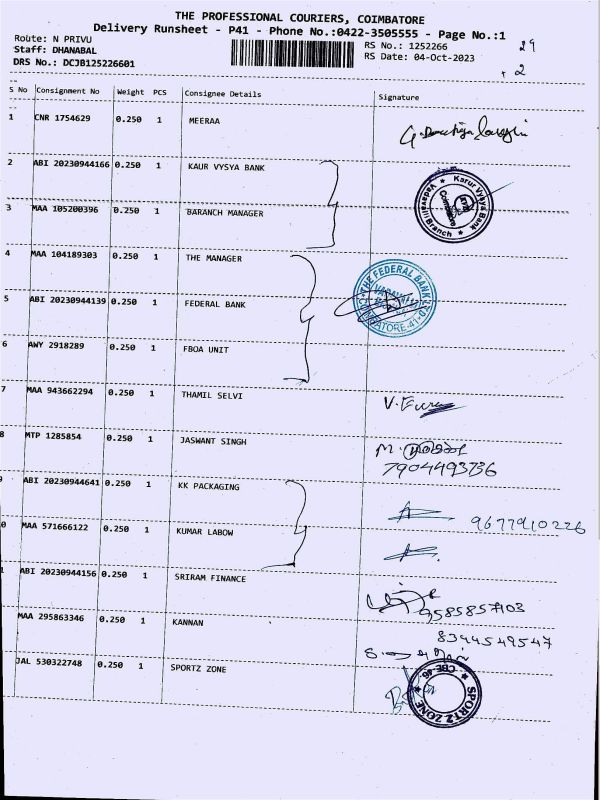 THE PROFESSIONAL COURIERS, COIMBATORE
Delivery Runsheet - P41 - Phone No.:0422-3505555 - Page No.:1
Route: N PRIVU RS No.: 1252266 29
Staff: DHANABAL RS Date: 04-Oct-2023
DRS No.: DCJB125226601 + 2
S No Consignment No Weight PCS Consignee Details Signature
1 CNR 1754629 0.250 1 MEERAA
2 ABI 20230944166 0.250 1 KAUR VYSYA BANK
Karur Vysya Bank
Coimbatore
Vadavalli Branch
3 MAA 105200396 0.250 1 BARANCH MANAGER
4 MAA 104189303 0.250 1 THE MANAGER
THE FEDERAL BANK LTD.
COIMBATORE-41
5 ABI 20230944139 0.250 1 FEDERAL BANK
6 AWY 2918289 0.250 1 FBOA UNIT
7 MAA 943662294 0.250 1 THAMIL SELVI
8 MTP 1285854 0.250 1 JASWANT SINGH
7904493736
ABI 20230944641 0.250 1 KK PACKAGING
9677910226
0 MAA 571666122 0.250 1 KUMAR LABOW
1 ABI 20230944156 0.250 1 SRIRAM FINANCE
9585857103
MAA 295863346 0.250 1 KANNAN
8344549547
JAL 530322748 0.250 1 SPORTZ ZONE
CBE-46
SPORTZ ZONE